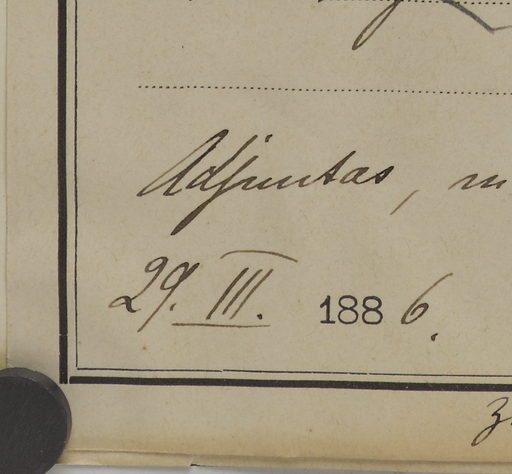 Adjuntas, m
29. III. 1886.